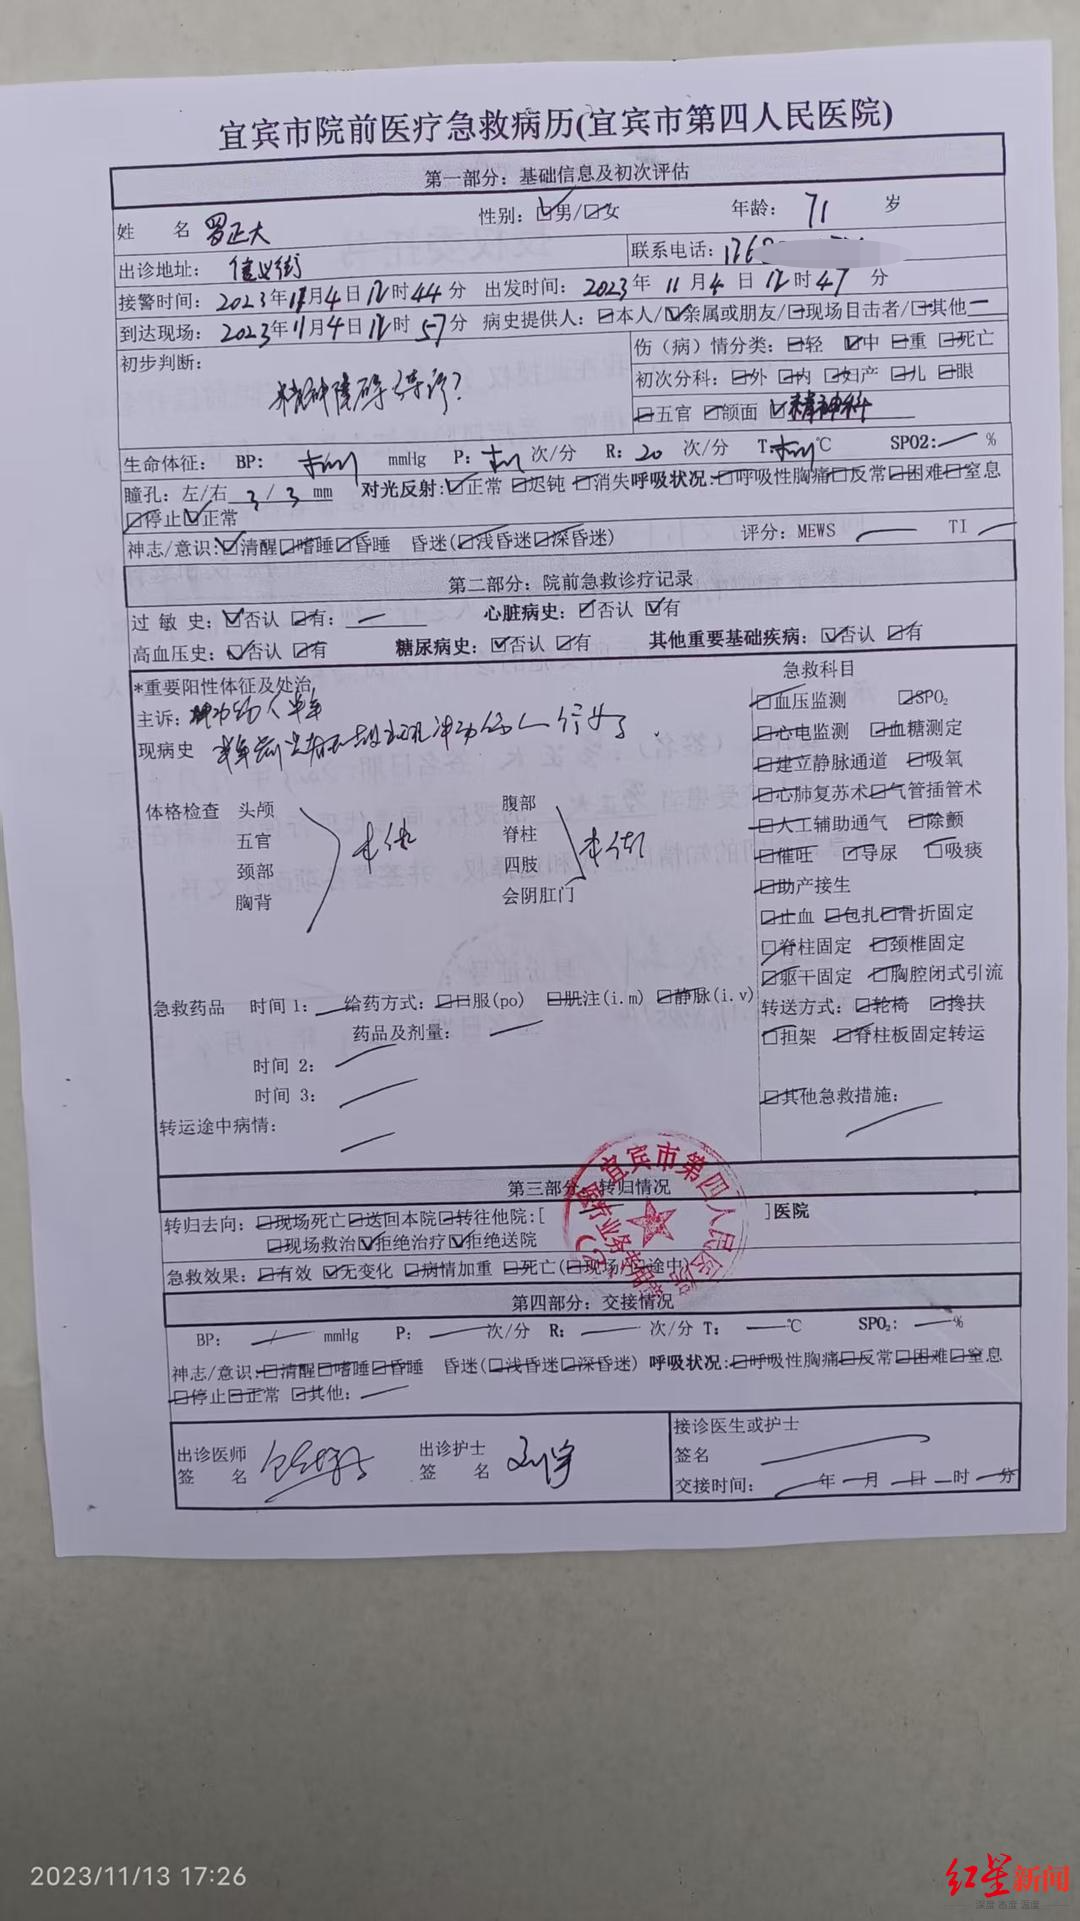 宜宾市院前医疗急救病历(宜宾市第四人民医院)
第一部分：基础信息及初次评估
姓 名 罗正大 性别：☑男/☐女 年龄：71 岁
出诊地址：信义街 联系电话：
接警时间：2023年11月4日12时44分 出发时间：2023年11月4日12时47分
到达现场：2023年11月4日12时57分 病史提供人：☐本人/☑亲属或朋友/☐现场目击者/☐其他
初步判断： 伤（病）情分类：☐轻 ☑中 ☐重 ☐死亡
精神障碍待诊？ 初次分科：☐外 ☐内 ☐妇产 ☐儿 ☐眼
☐五官 ☐颌面 ☑精神科
生命体征： BP: 未测 mmHg P: 未测 次/分 R: 20 次/分 T: 未测 ℃ SPO2: %
瞳孔：左/右 3 / 3 mm 对光反射:☑正常 ☐迟钝 ☐消失 呼吸状况:☐呼吸性胸痛☐反常☐困难☐窒息
☐停止☑正常
神志/意识:☑清醒☐嗜睡☐昏睡 昏迷(☐浅昏迷☐深昏迷) 评分：MEWS TI
第二部分：院前急救诊疗记录
过 敏 史：☑否认 ☐有： 心脏病史：☐否认 ☑有
高血压史：☑否认 ☐有 糖尿病史：☑否认 ☐有 其他重要基础疾病：☑否认 ☐有
*重要阳性体征及处治 急救科目
主诉：冲动伤人半年
现病史 半年前患者
体格检查 头颅 腹部
五官 未伤 脊柱 未伤
颈部 四肢
胸背 会阴肛门
☐血压监测 ☐SPO₂
☐心电监测 ☐血糖测定
☐建立静脉通道 ☐吸氧
☐心肺复苏术☐气管插管术
☐人工辅助通气 ☐除颤
☐催吐 ☐导尿 ☐吸痰
☐助产接生
☐止血 ☐包扎☐骨折固定
☐脊柱固定 ☐颈椎固定
☐躯干固定 ☐胸腔闭式引流
转送方式：☐轮椅 ☐搀扶
☐担架 ☐脊柱板固定转运
☐其他急救措施：
急救药品 时间 1: 给药方式：☐口服(po) ☐肌注(i.m) ☐静脉(i.v)
药品及剂量：
时间 2:
时间 3:
转运途中病情：
第三部分：转归情况
转归去向：☐现场死亡☐送回本院☐转往他院:[ ]医院
☐现场救治☑拒绝治疗☑拒绝送院
急救效果：☐有效 ☑无变化 ☐病情加重 ☐死亡(☐现场/☐途中)
宜宾市第四人民医院
医疗业务专用章
第四部分：交接情况
BP: mmHg P: 次/分 R: 次/分 T: ℃ SPO₂: %
神志/意识:☐清醒☐嗜睡☐昏睡 昏迷(☐浅昏迷☐深昏迷) 呼吸状况:☐呼吸性胸痛☐反常☐困难☐窒息
☐停止☐正常 ☐其他：
出诊医师 出诊护士 接诊医生或护士
签 名 签 名 签名
交接时间： 年 月 日 时 分
2023/11/13 17:26
红星新闻
深度 态度 温度